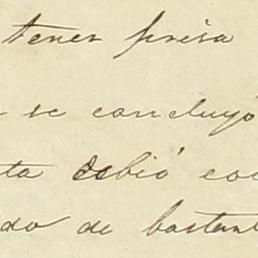 tener prisa
se concluyó
ta debió co
do de bastant